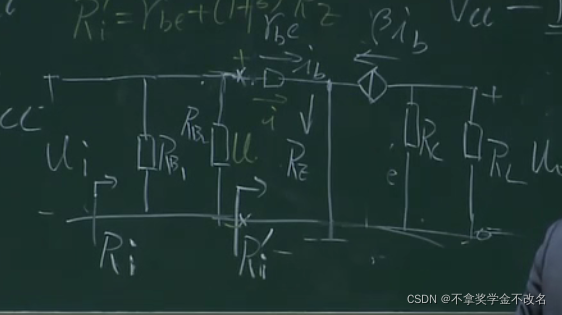 Ri' = rbe + (1+β) RZ
Vcc
rbe
βib
ib
+
+
+
Ui
RB1
RB2
U
i
RZ
Rc
RL
e
-
Ri
Ri'
CSDN @不拿奖学金不改名